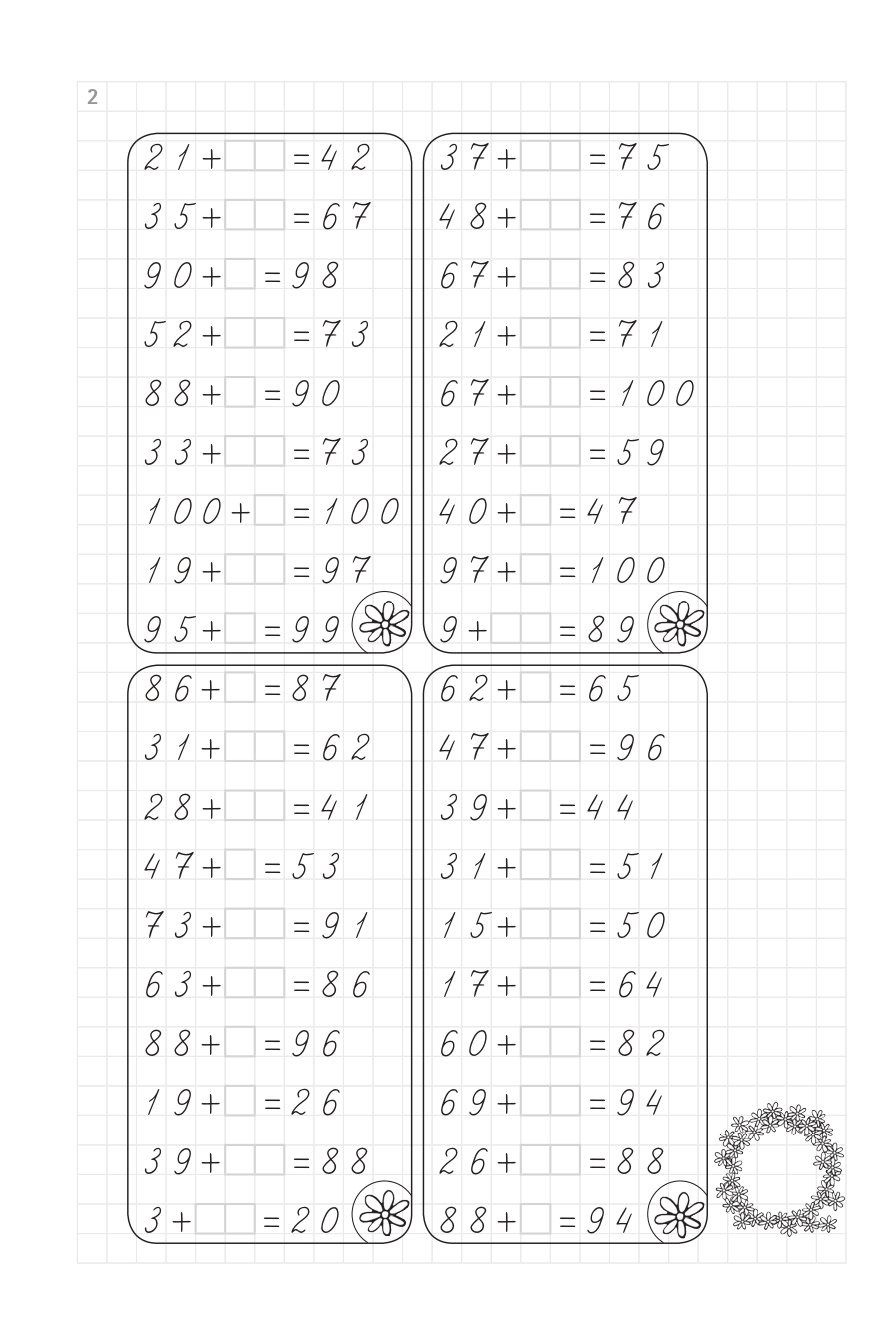 2
21+□□=42
35+□□=67
90+□=98
52+□□=73
88+□=90
33+□□=73
100+□=100
19+□□=97
95+□=99
37+□□=75
48+□□=76
67+□□=83
21+□□=71
67+□□=100
27+□□=59
40+□=47
97+□=100
9+□□=89
86+□=87
31+□□=62
28+□□=41
47+□=53
73+□□=91
63+□□=86
88+□=96
19+□=26
39+□□=88
3+□□=20
62+□=65
47+□□=96
39+□=44
31+□□=51
15+□□=50
17+□□=64
60+□□=82
69+□□=94
26+□□=88
88+□=94